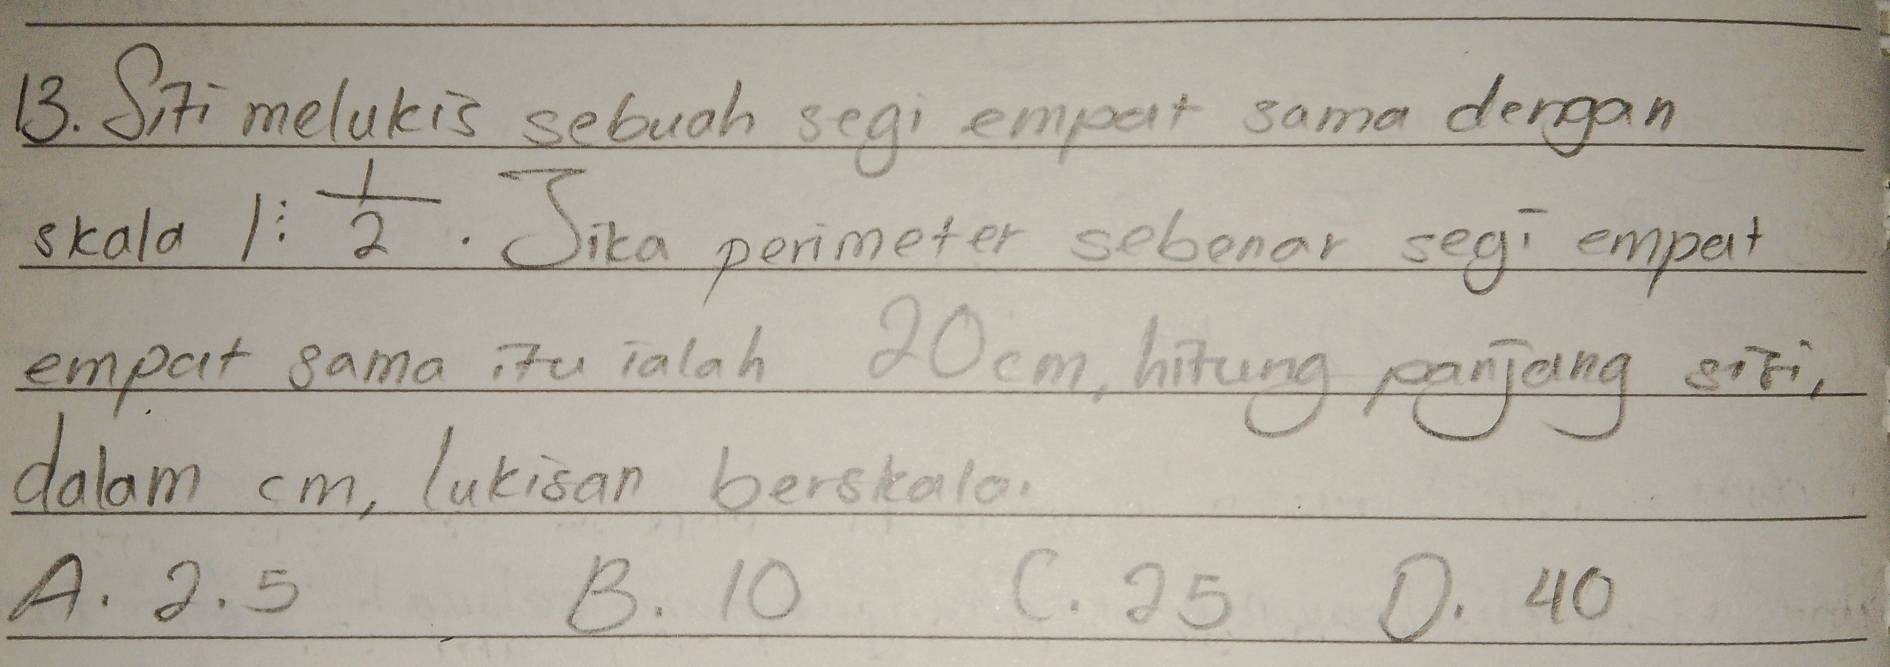 13. Siti melukis sebuah segi empat sama dengan
skala 1: 1/2. Jika perimeter sebenar segi empat
empat sama itu ialah 20cm, hitung panjang sisi,
dalam cm, lukisan berskala.
A. 2.5 B. 10 C. 25 D. 40